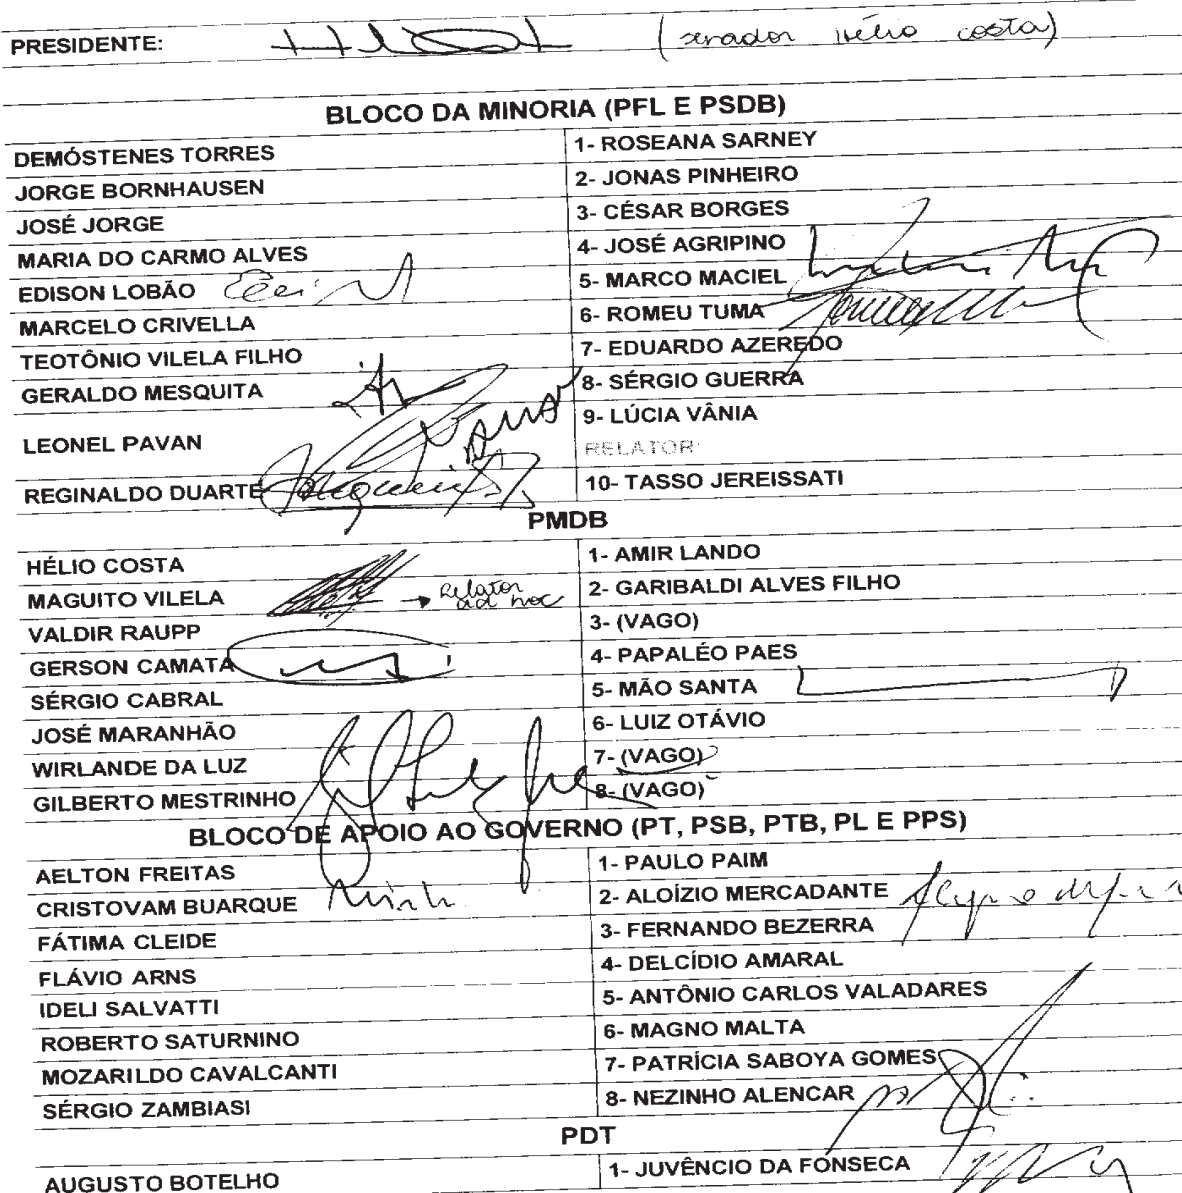 PRESIDENTE: (senador Hélio Costa)
BLOCO DA MINORIA (PFL E PSDB)
DEMÓSTENES TORRES 1- ROSEANA SARNEY
JORGE BORNHAUSEN 2- JONAS PINHEIRO
JOSÉ JORGE 3- CÉSAR BORGES
MARIA DO CARMO ALVES 4- JOSÉ AGRIPINO
EDISON LOBÃO 5- MARCO MACIEL
MARCELO CRIVELLA 6- ROMEU TUMA
TEOTÔNIO VILELA FILHO 7- EDUARDO AZEREDO
GERALDO MESQUITA 8- SÉRGIO GUERRA
LEONEL PAVAN 9- LÚCIA VÂNIA
RELATOR:
REGINALDO DUARTE 10- TASSO JEREISSATI
PMDB
HÉLIO COSTA 1- AMIR LANDO
MAGUITO VILELA → Relator ad hoc 2- GARIBALDI ALVES FILHO
VALDIR RAUPP 3- (VAGO)
GERSON CAMATA 4- PAPALÉO PAES
SÉRGIO CABRAL 5- MÃO SANTA
JOSÉ MARANHÃO 6- LUIZ OTÁVIO
WIRLANDE DA LUZ 7- (VAGO)
GILBERTO MESTRINHO 8- (VAGO)
BLOCO DE APOIO AO GOVERNO (PT, PSB, PTB, PL E PPS)
AELTON FREITAS 1- PAULO PAIM
CRISTOVAM BUARQUE 2- ALOÍZIO MERCADANTE
FÁTIMA CLEIDE 3- FERNANDO BEZERRA
FLÁVIO ARNS 4- DELCÍDIO AMARAL
IDELI SALVATTI 5- ANTÔNIO CARLOS VALADARES
ROBERTO SATURNINO 6- MAGNO MALTA
MOZARILDO CAVALCANTI 7- PATRÍCIA SABOYA GOMES
SÉRGIO ZAMBIASI 8- NEZINHO ALENCAR
PDT
AUGUSTO BOTELHO 1- JUVÊNCIO DA FONSECA